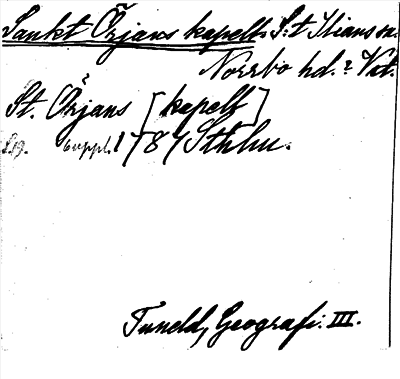 Sankt Örjans kapell. S:t Ilians sn.
Norrbo hd.? Vst.
St. Örjans [kapell]
1787 Sthlm.
Tuneld, Geografi. III.